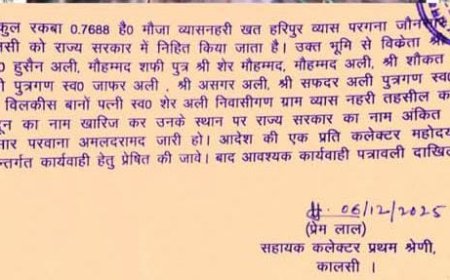 कुल रकबा 0.7688 है० मौजा व्यासनहरी खत हरिपुर व्यास परगना जौनसार
लसी को राज्य सरकार में निहित किया जाता है। उक्त भूमि से विक्रेता श्री
० हुसैन अली, मौहम्मद शफी पुत्र श्री शेर मौहम्मद, मौहम्मद अली, श्री शौकत
ी पुत्रगण स्व० जाफर अली , श्री असगर अली, श्री सफदर अली पुत्रगण स्व०
विलकीस बानों पत्नी स्व० शेर अली निवासीगण ग्राम व्यास नहरी तहसील क
दून का नाम खारिज कर उनके स्थान पर राज्य सरकार का नाम अंकित
सार परवाना अमलदरामद जारी हो। आदेश की एक प्रति कलेक्टर महोदय
न्तर्गत कार्यवाही हेतु प्रेषित की जावे। बाद आवश्यक कार्यवाही पत्रावली दाखिल
06/12/2025
(प्रेम लाल)
सहायक कलेक्टर प्रथम श्रेणी,
कालसी ।